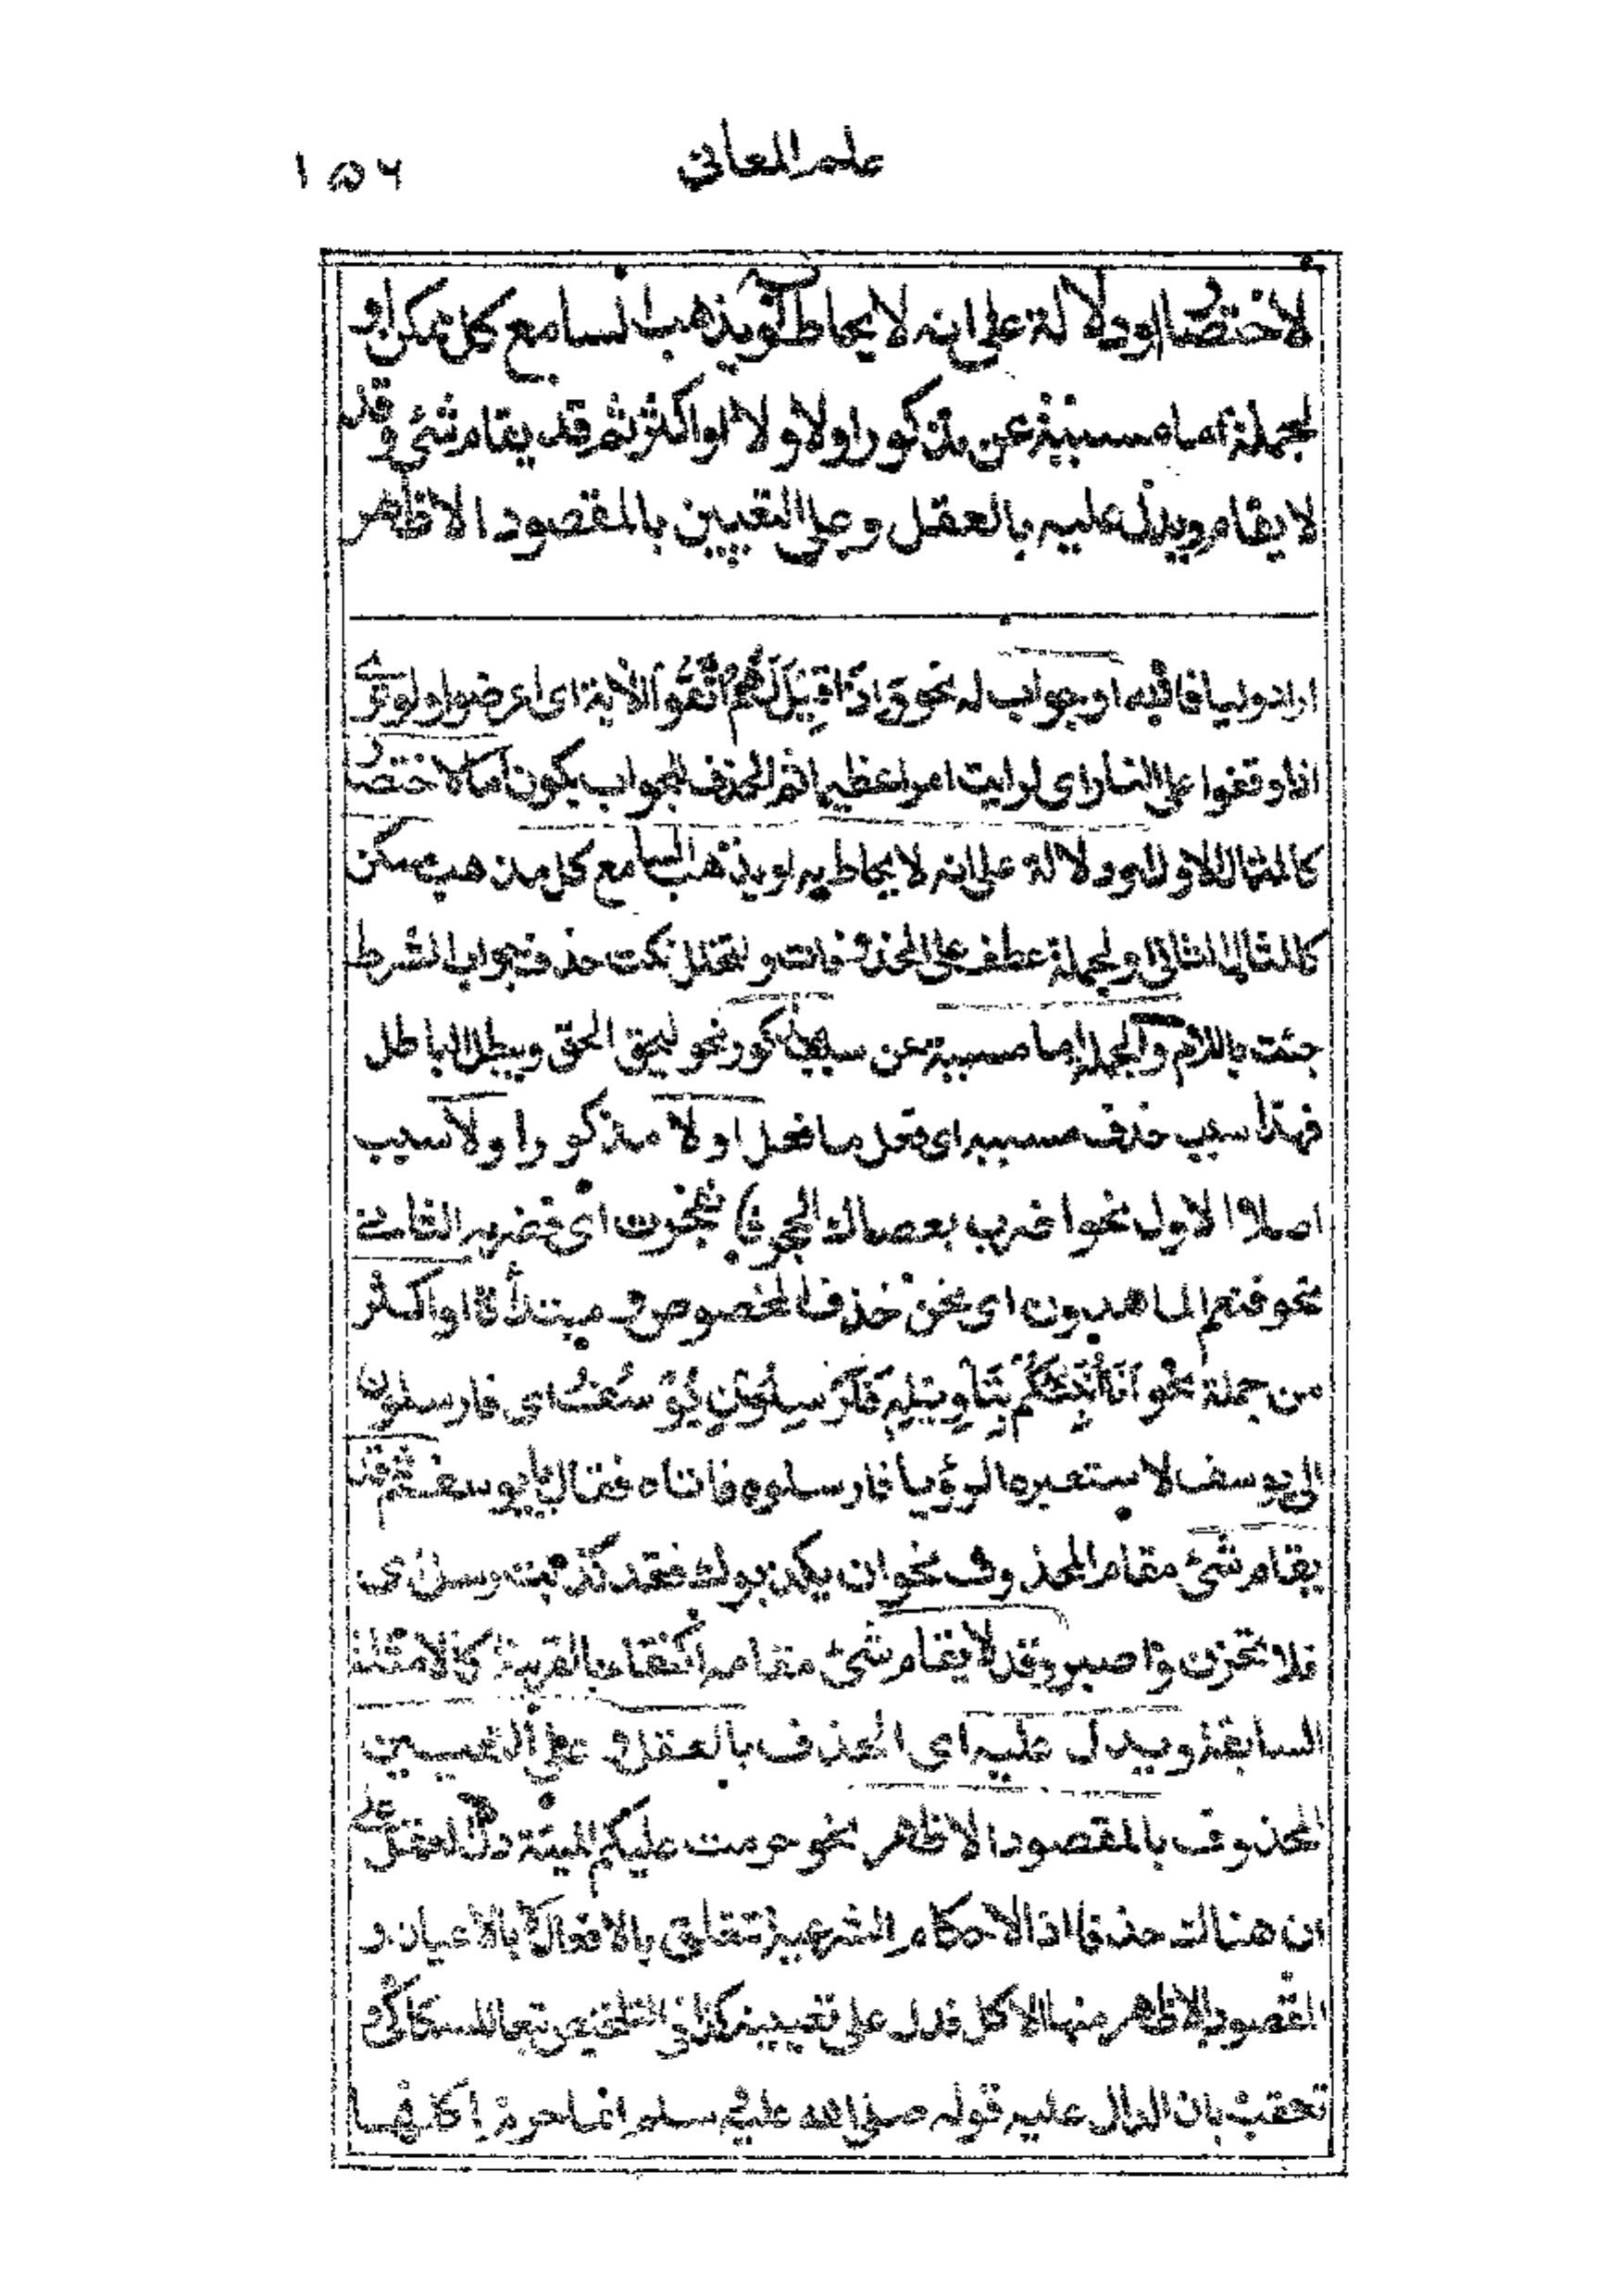 علم المعانى
١٥٦
لاختصار اودلالة على انه لا يحاط اويذهب السامع كل ممكن او
لجملة اما مسببة عن مذكور اولا ولا او اكثر ثم قد يقام شئ وقد
لا يقام ويدل عليه بالعقل وعلى التعيين بالمقصود الاظهر
اوجواب له نحو واذا قيل لهم اتقوا الاية اى اعرضوا ولو ترى
اذا وقفوا على النار اى لرايت امرا عظيما ثم الحذف للجواب يكون اما لاختصار
كالمثال الاول اودلالة على انه لا يحاط به اويذهب السامع كل مذهب ممكن
كالمثال الثانى اولجملة عطف على نكت حذف جواب الشرط
جئت باللام والجملة اما مسببة عن سبب مذكور نحو ليحق الحق ويبطل الباطل
فهذا سبب حذف مسببه اى فعل ما فعل اولا مذكورا ولا سبب
اصلا الاول نحو اضرب بعصاك الحجر فانفجرت اى فضربه الثانى
نحو فنعم الماهدون اى نحن حذف المخصوص ومبتدأه او اكثر
من جملة نحو انا انبئكم بتاويله فارسلون يوسف اى فارسلون
الى يوسف لاستعبره الرؤيا فارسلوه فاتاه فقال يا يوسف ثم قد
يقام شئ مقام المحذوف نحو ان يكذبوك فقد كذبت رسل اى
فلا تحزن واصبر وقد لا يقام شئ مقامه اكتفاء بالقرينة كالامثلة
السابقة ويدل عليه اى الحذف بالعقل وعلى التعيين
للمحذوف بالمقصود الاظهر نحو حرمت عليكم الميتة دل العقل على
ان هناك حذفا اذ الاحكام الشرعية تتعلق بالافعال لا بالاعيان و
المقصود الاظهر منها الاكل فدل على تعيينه كذا فى التلخيص تبعا للسكاكى و
تعقب بان الدال عليه قوله صلى الله عليه وسلم انما حرم اكلها